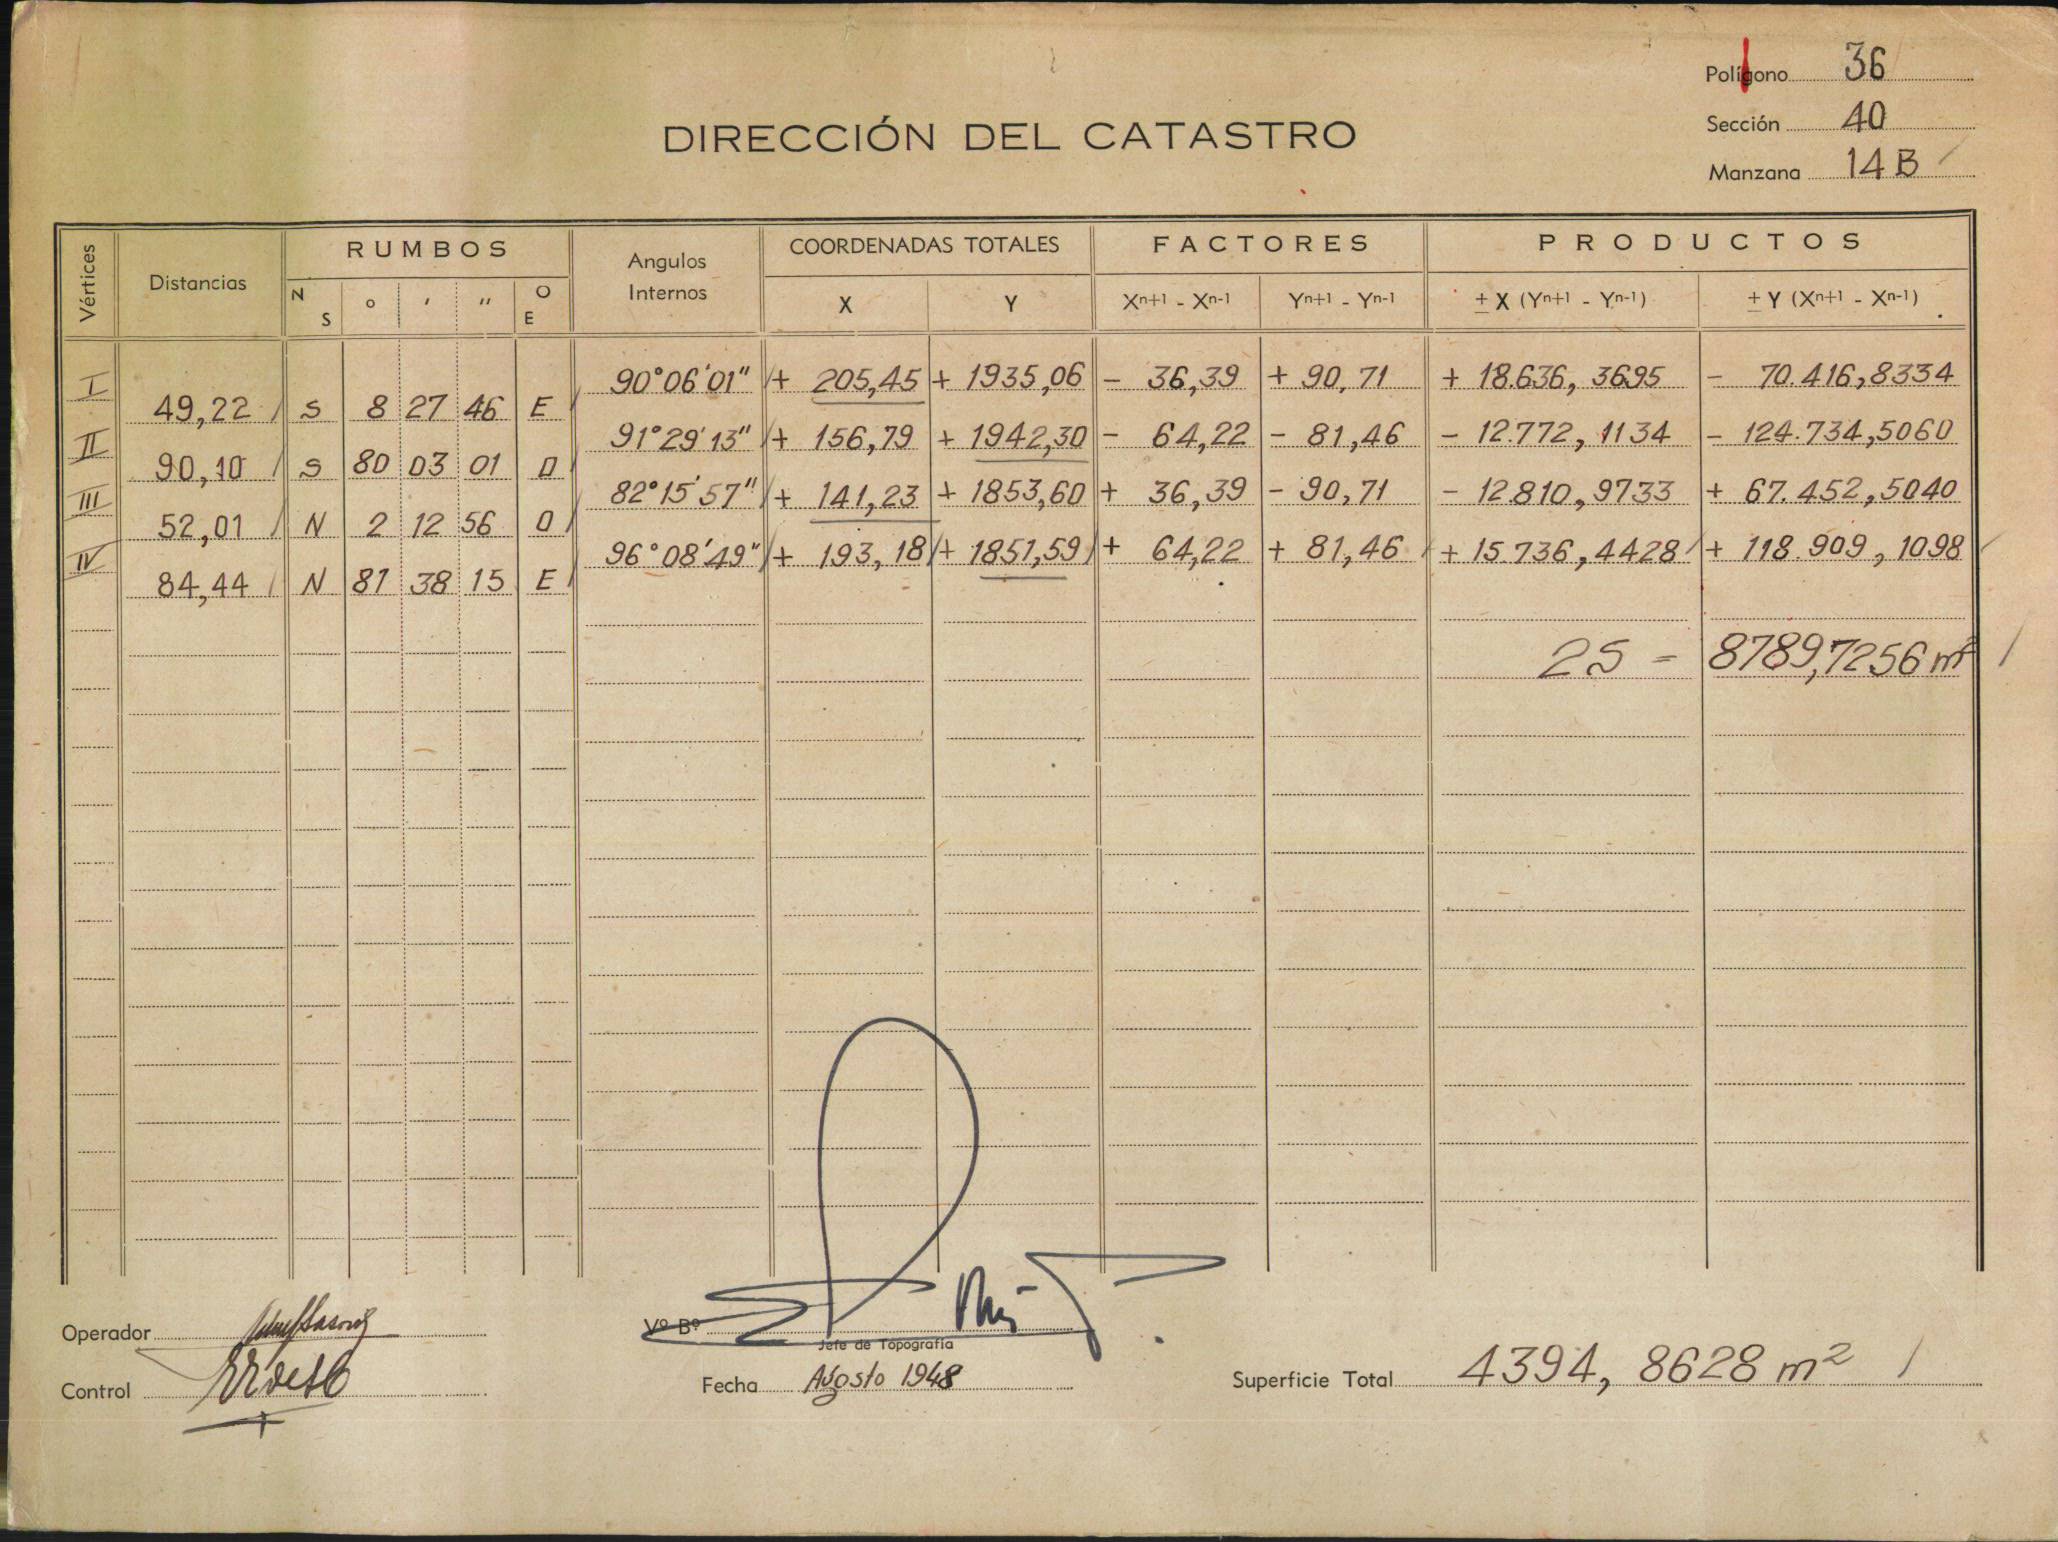 Polígono 36
Sección 40
Manzana 14 B
DIRECCIÓN DEL CATASTRO
Vértices Distancias RUMBOS Angulos Internos COORDENADAS TOTALES FACTORES PRODUCTOS
N S ° ' " O E X Y Xn+1 - Xn-1 Yn+1 - Yn-1 ± X (Yn+1 - Yn-1) ± Y (Xn+1 - Xn-1)
I 90°06'01" + 205,45 + 1935,06 - 36,39 + 90,71 + 18.636,3695 - 70.416,8334
49,22 S 8 27 46 E
II 91°29'13" + 156,79 + 1942,30 - 64,22 - 81,46 - 12.772,1134 - 124.734,5060
90,10 S 80 03 01 O
III 82°15'57" + 141,23 + 1853,60 + 36,39 - 90,71 - 12.810,9733 + 67.452,5040
52,01 N 2 12 56 O
IV 96°08'49" + 193,18 + 1851,59 + 64,22 + 81,46 + 15.736,4428 + 118.909,1098
84,44 N 81 38 15 E
2S = 8789,7256 m²
Operador
Vº Bº
Jefe de Topografía
Control
Fecha Agosto 1948
Superficie Total 4394,8628 m²